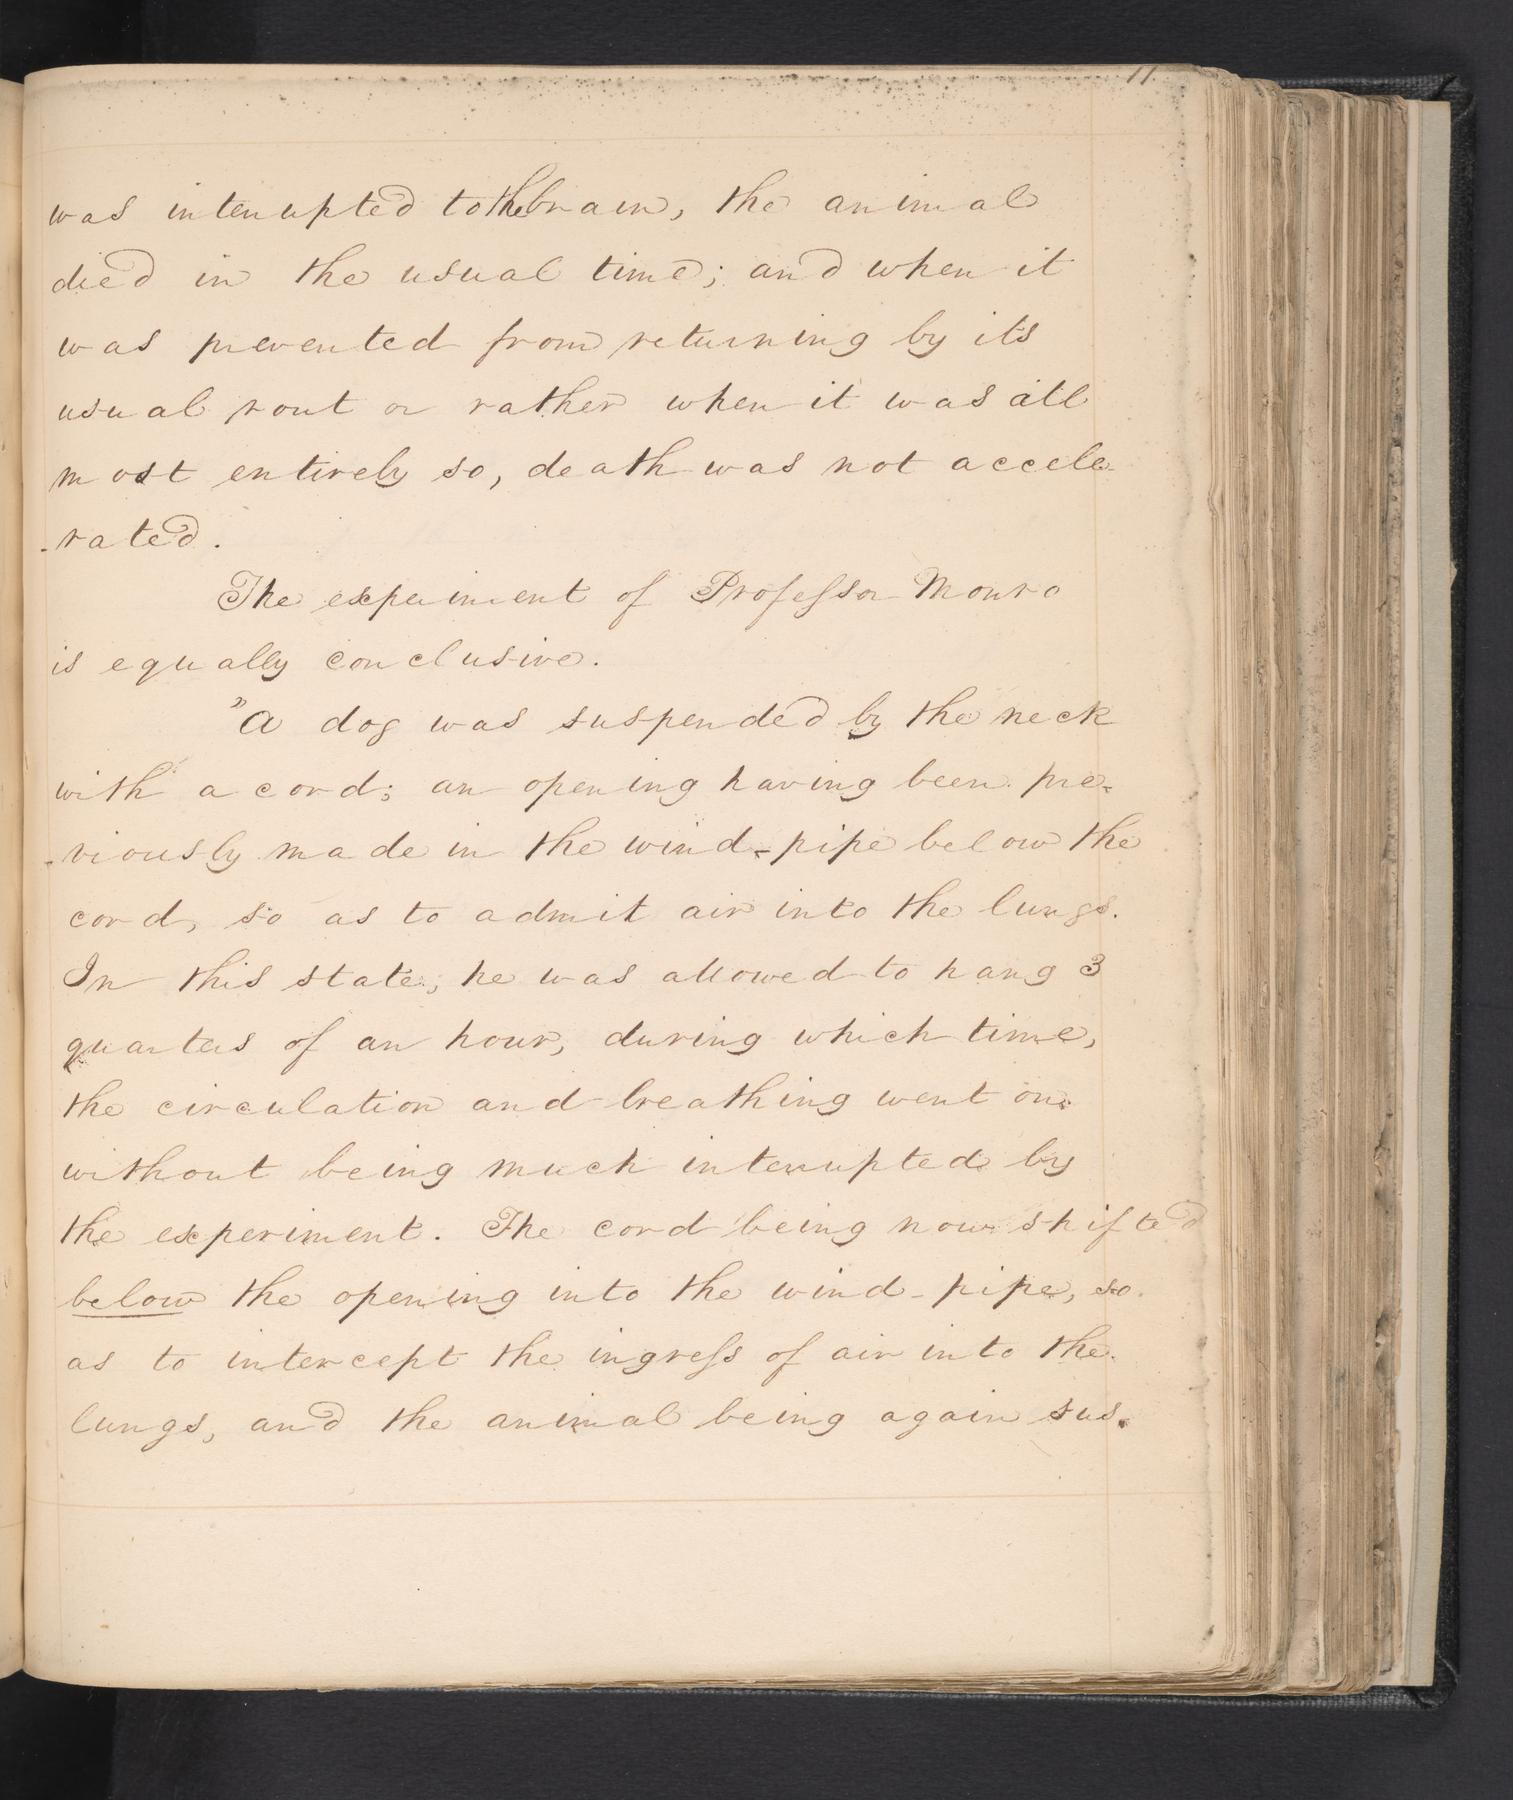 11.
was interrupted to the brain, the animal
died in the usual time; and when it
was prevented from returning by its
usual rout or rather when it was all
most entirely so, death was not accele-
-rated.
The experiment of Professor Monro
is equally conclusive.
"A dog was suspended by the neck
with a cord; an opening having been pre-
-viously made in the wind-pipe below the
cord, so as to admit air into the lungs.
In this state, he was allowed to hang 3
quarters of an hour, during which time,
the circulation and breathing went on
without being much interrupted by
the experiment. The cord being now shifted
below the opening into the wind-pipe, so
as to intercept the ingress of air into the
lungs, and the animal being again sus-